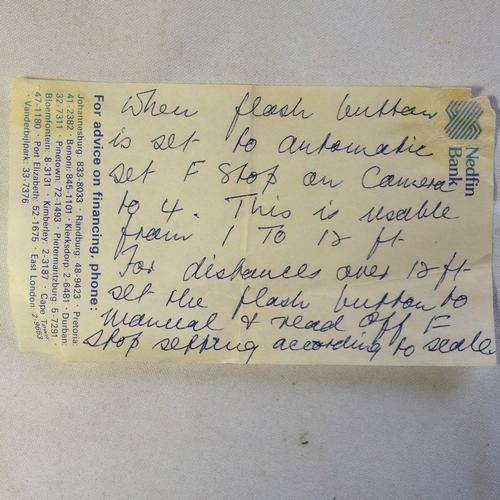 When flash button
is set to automatic
set F Stop on Camera
to 4. This is usable
from 1 TO 12 ft.
For distances over 12 ft
set the flash button to
manual & read off F
Stop setting according to scale
Nedfin
Bank
For advice on financing, phone:
Johannesburg: 833-8033 · Randburg: 48-9423 · Pretoria:
41-2382 · Benoni: 845-1101 · Klerksdorp: 2-6481 · Durban:
32-7311 · Pinetown: 72-1493 · Pietermaritzburg: 5-7291 ·
Bloemfontein: 8-3131 · Kimberley: 2-3197 · Cape Town:
47-1180 · Port Elizabeth: 52-1675 · East London: 2-9653
· Vanderbijlpark: 33-7376.